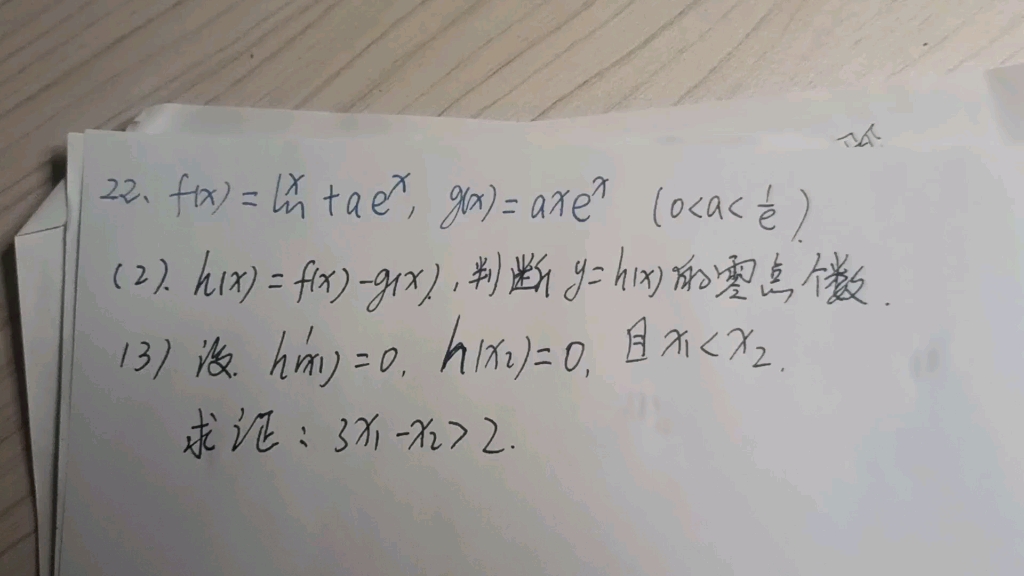 22、f(x) = lnx + ae^x, g(x) = axe^x (0<a<1/e).
(2). h(x) = f(x) - g(x), 判断 y = h(x) 的零点个数.
(3) 设 h'(x₁) = 0, h(x₂) = 0, 且 x₁ < x₂.
求证: 3x₁ - x₂ > 2.